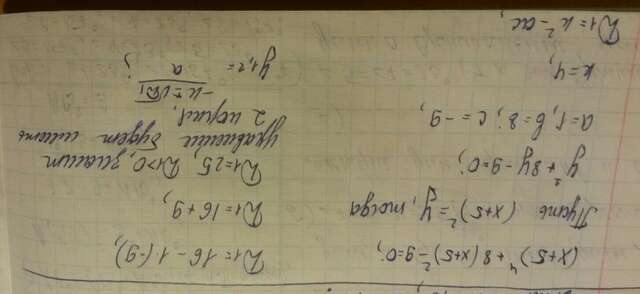 (x+5)⁴+8(x+5)²-9=0;
Пусть (x+5)²=y, тогда
y²+8y-9=0;
a=1, b=8; c=-9,
k=4,
D₁=k²-ac,
D₁=16-1·(-9),
D₁=16+9,
D₁=25, D₁>0, значит
уравнение будет иметь
2 корня,
y₁,₂=(-k±√D₁)/a;